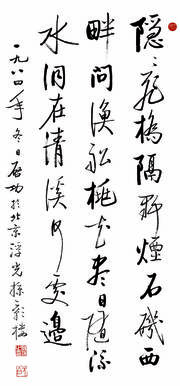 隱〻飛橋隔野煙石磯西
畔問漁舩桃花盡日隨流
水洞在清溪何處邊
一九八四年冬日启功於北京浮光掠影樓